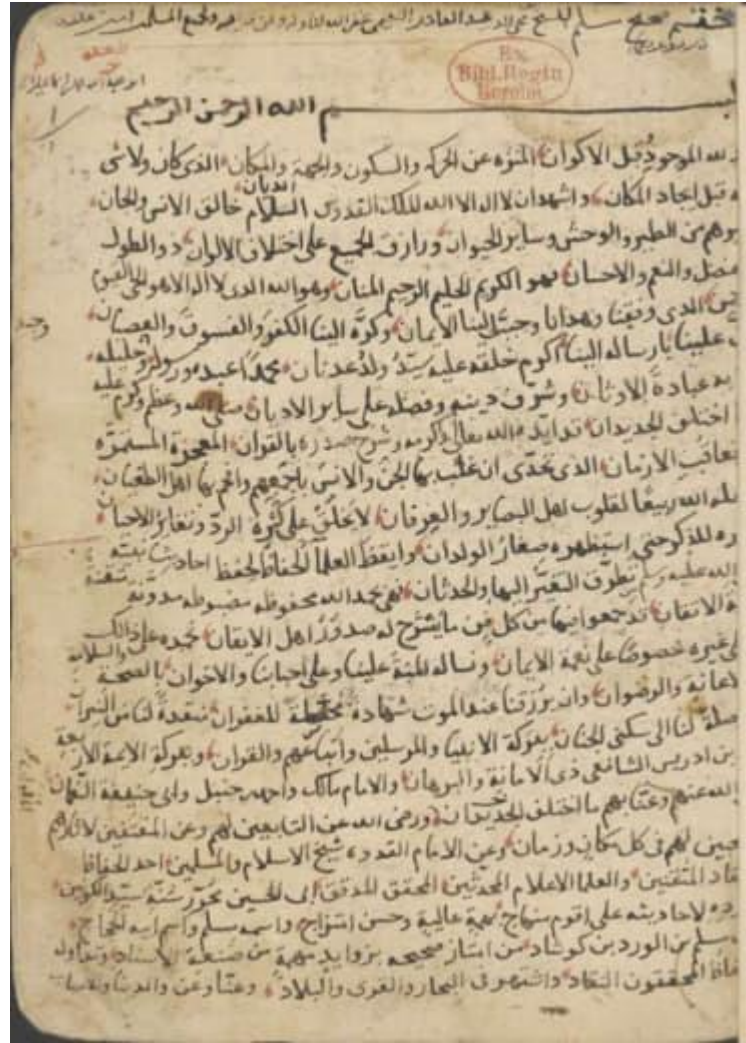 ختم صحيح مسلم للشيخ محيي الدين عبد القادر النعيمي غفر الله له ولوالديه ولجميع المسلمين
Ex
Bibl. Regia
Berolin.
بسم الله الرحمن الرحيم
لله الموجود قبل الاكوان المنزه عن الحركة والسكون والجهة والمكان الذي كان ولا شي
قبل ايجاد المكان واشهد ان لا اله الا الله الملك القدوس السلام الديان خالق الانس والجان
من الطير والوحش وساير الحيوان ورازق الجميع على اختلاف الالوان ذو الطول
والنعم والاحسان فهو الكريم الحليم الرحيم المنان وهو الله الذي لا اله الا هو الحي القيوم
الذي وفقنا وهدانا وحبب الينا الايمان وكره الينا الكفر والفسوق والعصيان
علينا بارساله الينا اكرم خلقه عليه سيد ولد عدنان محمدا عبده ورسوله وخليله
به عبادة الاوثان وشرف دينه وفضله على ساير الاديان صلى الله وعظم وكرم عليه
اختلف الجديدان قد ايده الله تعالى وكرمه وشرح صدره بالقران المعجزة المستمرة
تعاقب الازمان الذي تحدى ان غلب بها الجن والانس باجمعهم وافحم بها اهل الطغيان
الله ربيعا لقلوب اهل البصاير والعرفان لا يخلق على كثرة الرد وتغاير الاحيان
للذكر حتى استظهره صغار الولدان وايقظ العلما الحفاظ لحفظ احاديث نبيه
الله عليه وسلم تطرق التغير اليها والحدثان فهي بحمد الله محفوظة مضبوطة مدونة متقنة
الاتقان قد جمعوا منها من كل فن ما يشرح له صدور اهل الايقان نحمده على ذلك
غيره خصوصا على نعمة الايمان ونساله المنة علينا وعلى احبابنا والاخوان بالصحة والسلامة
والرضوان وان يرزقنا عند الموت شهادة للغفران منقذة لنا من النيران
لنا الى سكنى الجنان ببركة الانبيا والمرسلين واتباعهم والقران وببركة الايمة الاربعة
بن ادريس الشافعي ذي الامانة والبرهان والامام مالك واحمد بن حنبل وابي حنيفة النعمان
الله عنهم وعنا بهم ما اختلف ورضي الله عن التابعين لهم وعن المقتفين لاثارهم
لهم في كل مكان وزمان وعن الامام القدوة شيخ الاسلام والمسلمين احد الحفاظ
المتقنين والعلما الاعلام المحدثين المحقق المدقق ابي الحسين محرر سنة سيد الكونين
لاحاديثه على اقوم منهاج بهمة عالية وحسن امتزاج واسمه مسلم واسم ابيه الحجاج
مسلم بن الورد بن كوشاد من امتاز صحيحه بزوايد مهمة من صنعة الاسناد وتداوله
المحققون النقاد واشتهر في البحار والقرى والبلاد وعنا وعن والدينا